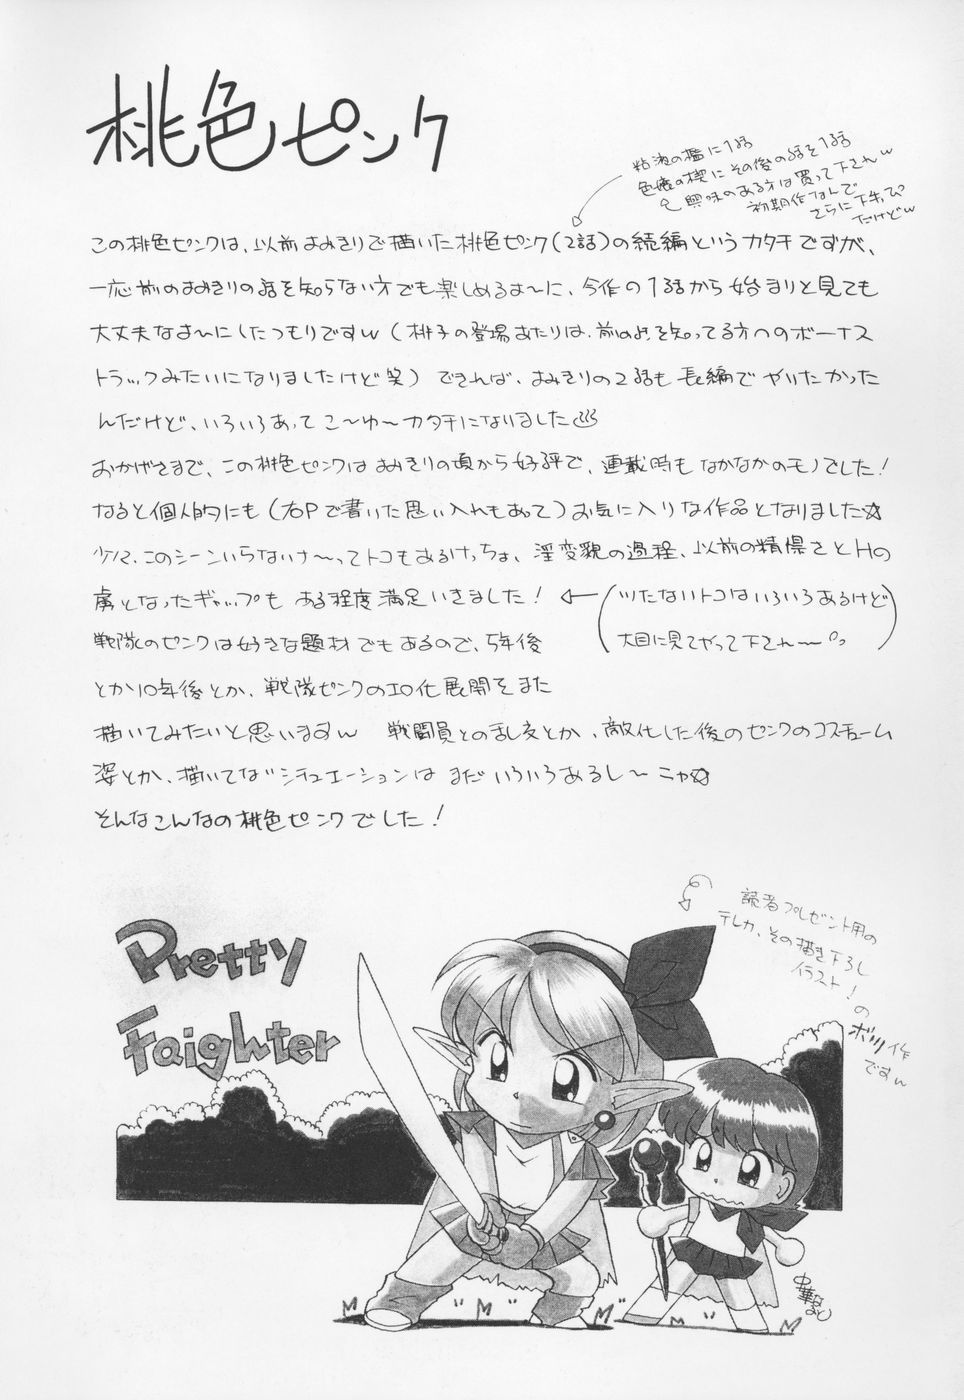 桃色ピンク
粘液の檻に1話
色魔の楔にその後の話を1話
興味のある方は買って下されw
初期作なんで
さらに下手っぴ
だけどw
この桃色ピンクは、以前よみきりで描いた桃色ピンク(2話)の続編というカタチですが、
一応前のよみきりの話を知らない方でも楽しめるよ〜に、今作の1話から始まりと見ても
大丈夫なよ〜にしたつもりですw(桃子の登場あたりは、前のよみを知ってる方へのボーナス
トラックみたいになりましたけど笑)できれば、よみきりの2話も長編でやりたかった
んだけど、いろいろあってこ〜ゆ〜カタチになりました
おかげさまで、この桃色ピンクはよみきりの頃から好評で、連載時もなかなかのモノでした!
なると個人的にも(右Pで書いた思い入れもあって)お気に入りな作品となりました☆
少々、このシーンいらないけ〜ってトコもあるけっちょ、淫変貌の過程、以前の精悍さとHの
虜となったギャップも ある程度満足いきました!
(ツたないトコはいろいろあるけど
大目に見てやって下され〜)
戦隊のピンクは好きな題材でもあるので、5年後
とか10年後とか、戦隊ピンクのエロ化展開をまた
描いてみたいと思いますw 戦闘員との乱交とか、敵化した後のピンクのコスチューム
姿とか、描いてないシチュエーションは まだいろいろあるし〜ニャ☆
そんなこんなの桃色ピンクでした!
読者プレゼント用の
テレカ、その描き下ろし
イラスト!
の
ボツ作
ですw
Pretty
Faighter
中華なると